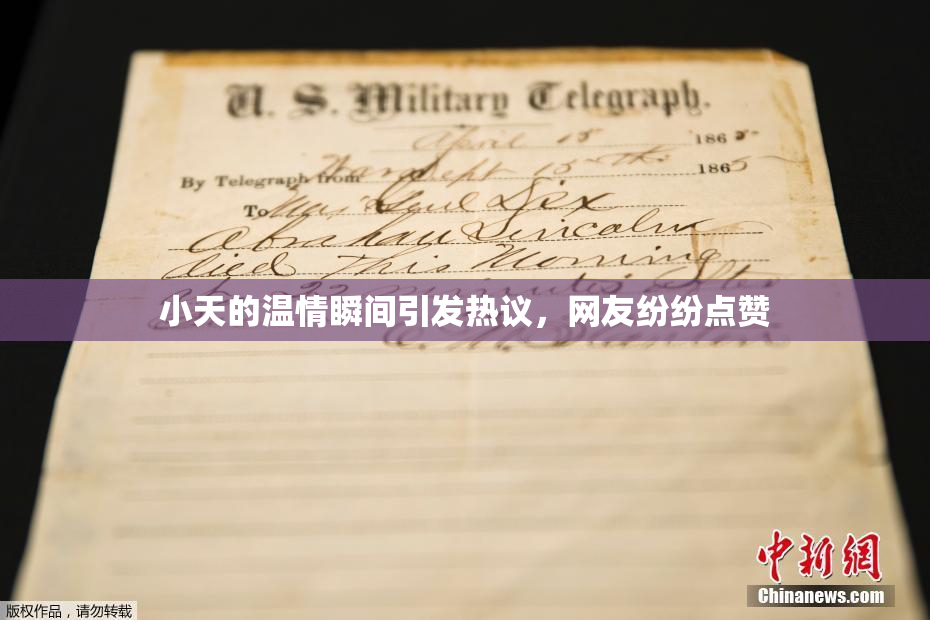 U. S. Military Telegraph.
April 15 1865
By Telegraph from War Dept 15th 1865
To Maj Genl Dix
Abraham Lincoln
died This Morning
at 22 minutes after
小天的温情瞬间引发热议，网友纷纷点赞
E. M. Stanton
中新网
Chinanews.com
版权作品，请勿转载